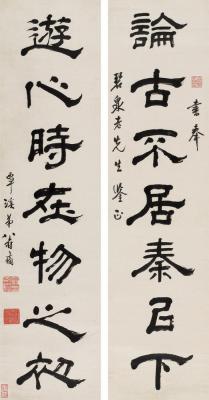 書奉
論古不居秦㠯下
碧泉老先生鑒正
遊心時在物之初